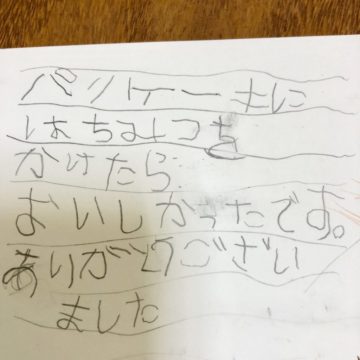 パンケーキに
はちみつを
かけたら
おいしかったです。
ありがとうござい
ました